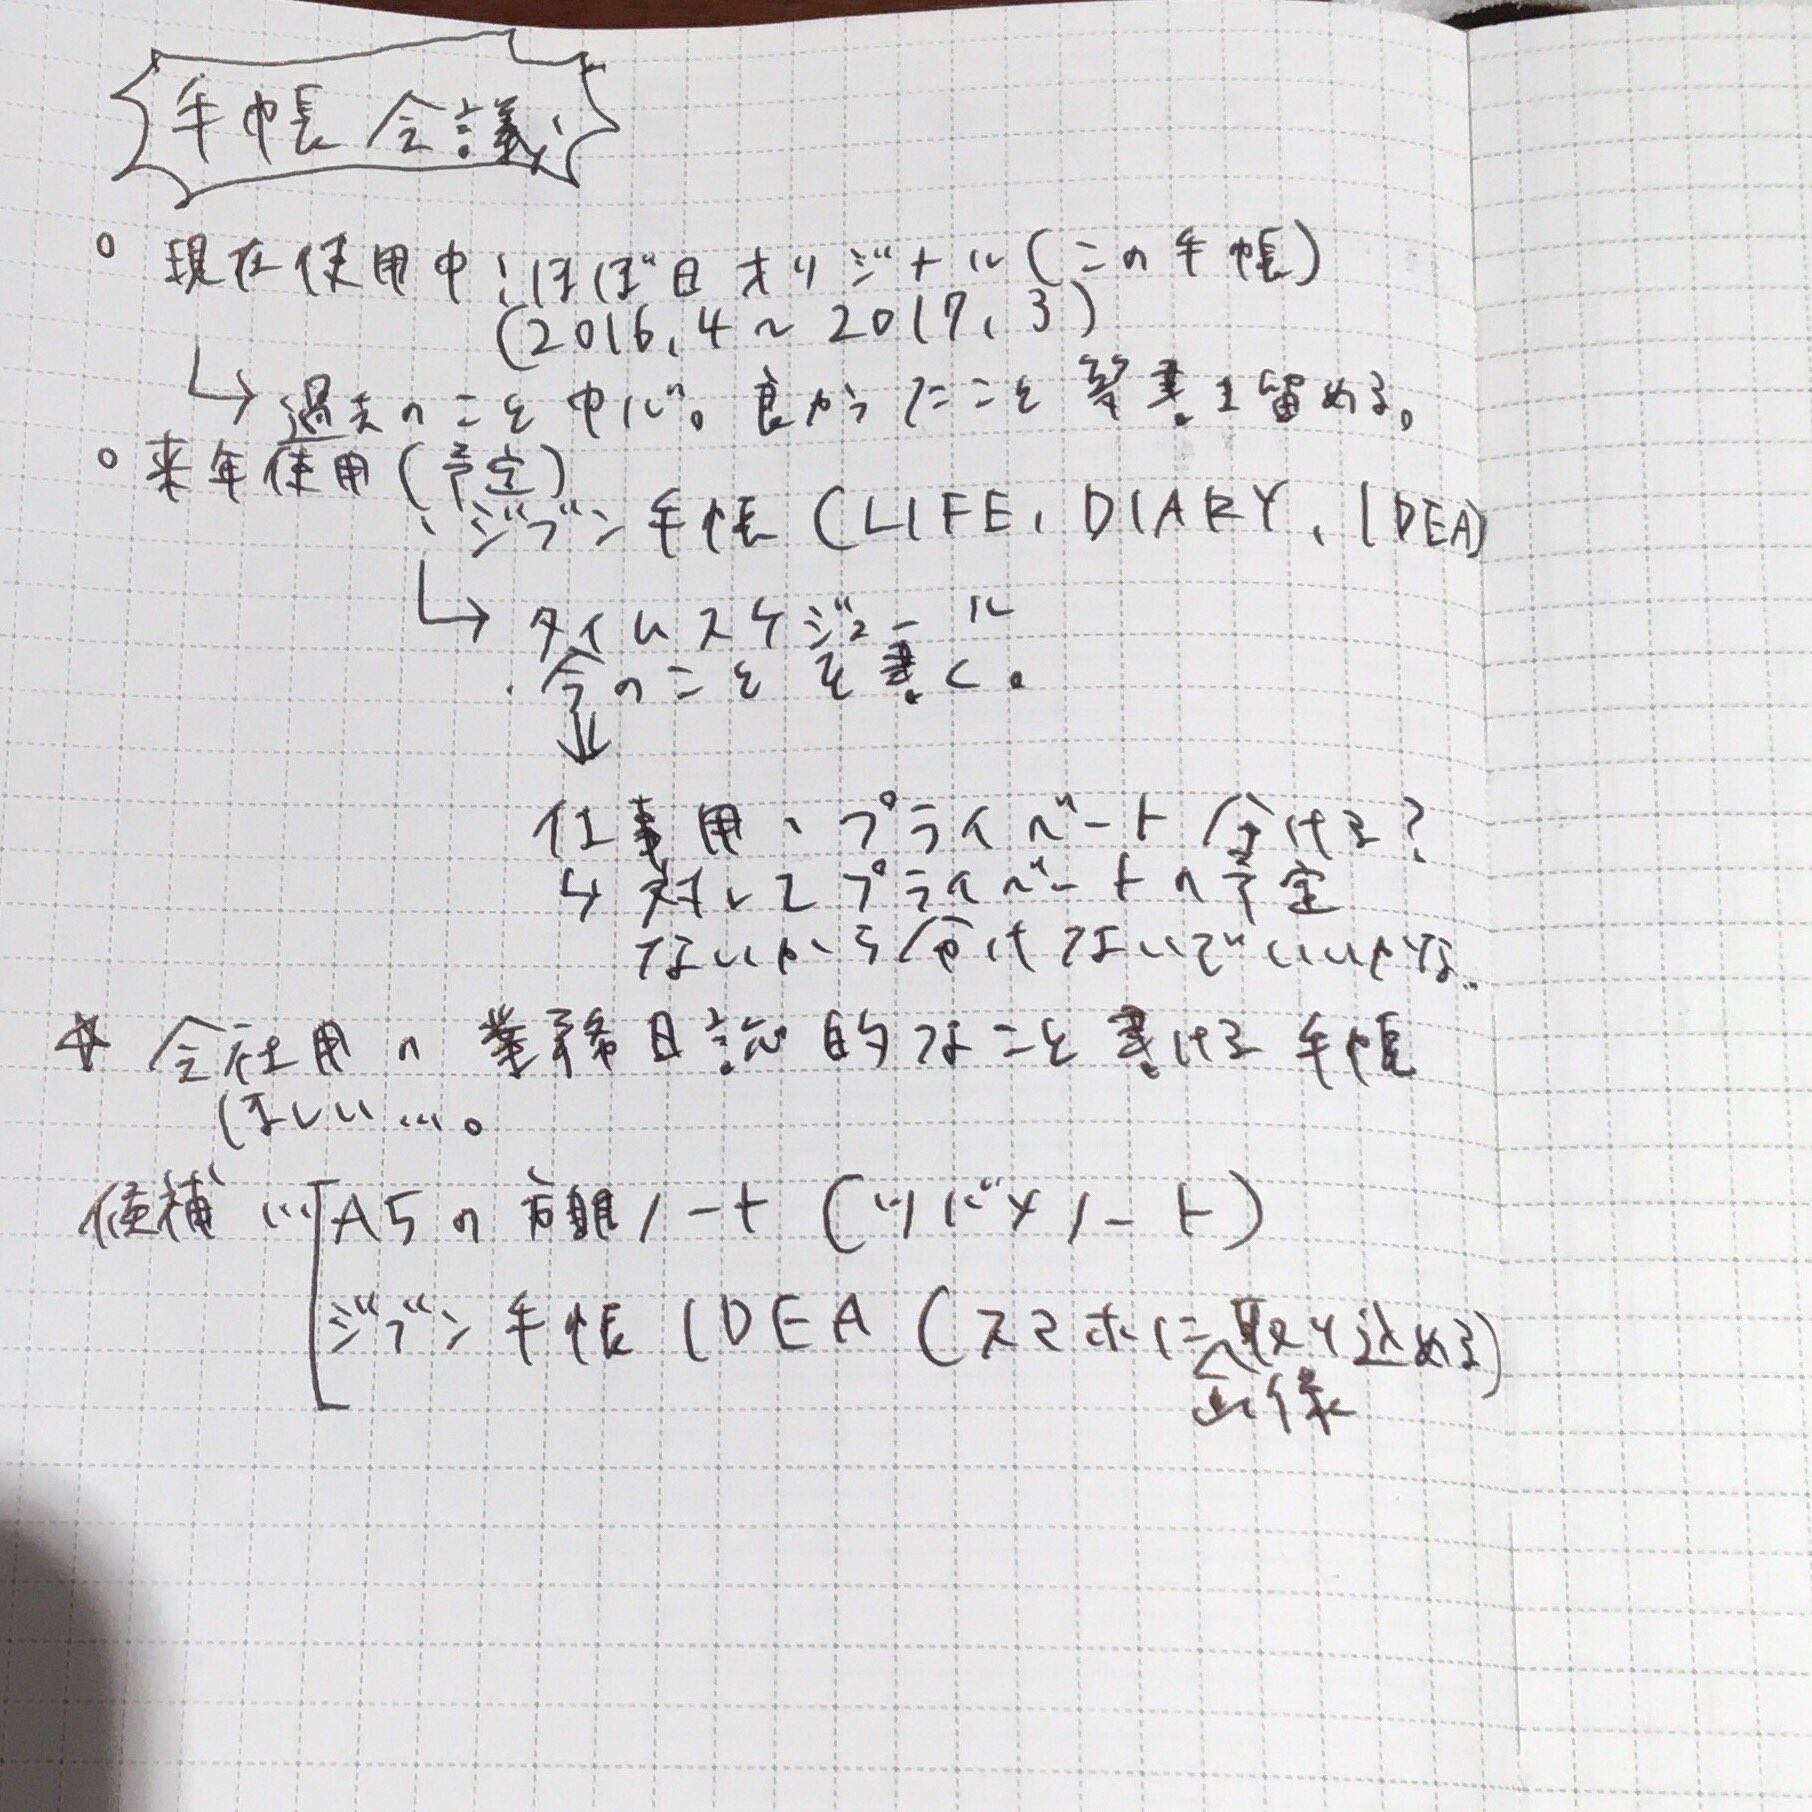 手帳会議
○ 現在使用中:ほぼ日オリジナル(この手帳)
(2016.4~2017.3)
↳ 過去のことを中心。良かったこと等書き留める。
○ 来年使用(予定)
:ジブン手帳(LIFE、DIARY、IDEA)
↳ タイムスケジュール
・今のことを書く。
↓
仕事用・プライベート分ける?
↳ 対してプライベートの予定
ないから分けないでいいかな…
☆ 会社用の業務日誌的なこと書ける手帳
ほしい…。
候補…A5の方眼ノート(ツバメノート)
ジブン手帳IDEA(スマホに取り込める)
画像